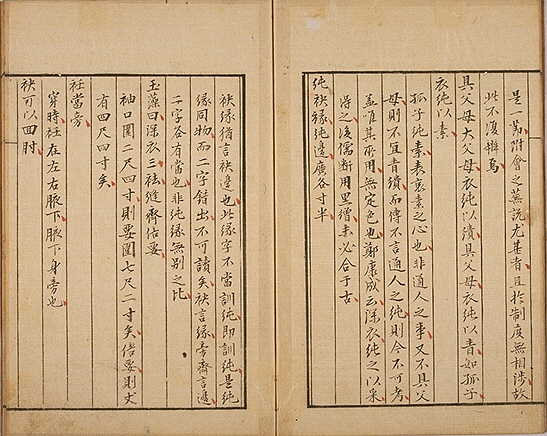 是一附會之蕪說尤甚者且於制度無相涉故
此不復辯焉
具父母大父母衣純以繢具父母衣純以青如孤子
衣純以素
孤子純素表哀素之心也非通人之事又不具父
母則不宜青繢而傳不言通人之純則今不可考
蓋唯其所用無定色也鄭康成云深衣純之以采
得之後儒斷用繒未必合于古
純袂緣純邊廣各寸半
袂緣猶言袂邊也此緣字不當訓純即訓純是純
緣同物而二字錯出不可讀矣袂言緣旁齊言邊
二字各有當也非純緣無別之比
玉藻曰深衣三袪縫齊倍要
袖口圍二尺四寸則要圍七尺二寸矣倍要則丈
有四尺四寸矣
衽當旁
穿時衽在左右腋下腋下身旁也
袂可以回肘